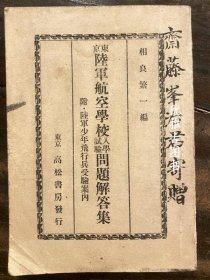 齋藤峯治君寄贈
相良繁一編
東京陸軍航空學校入學試驗問題解答集
附・陸軍少年飛行兵受驗案内
東京 高松書房發行